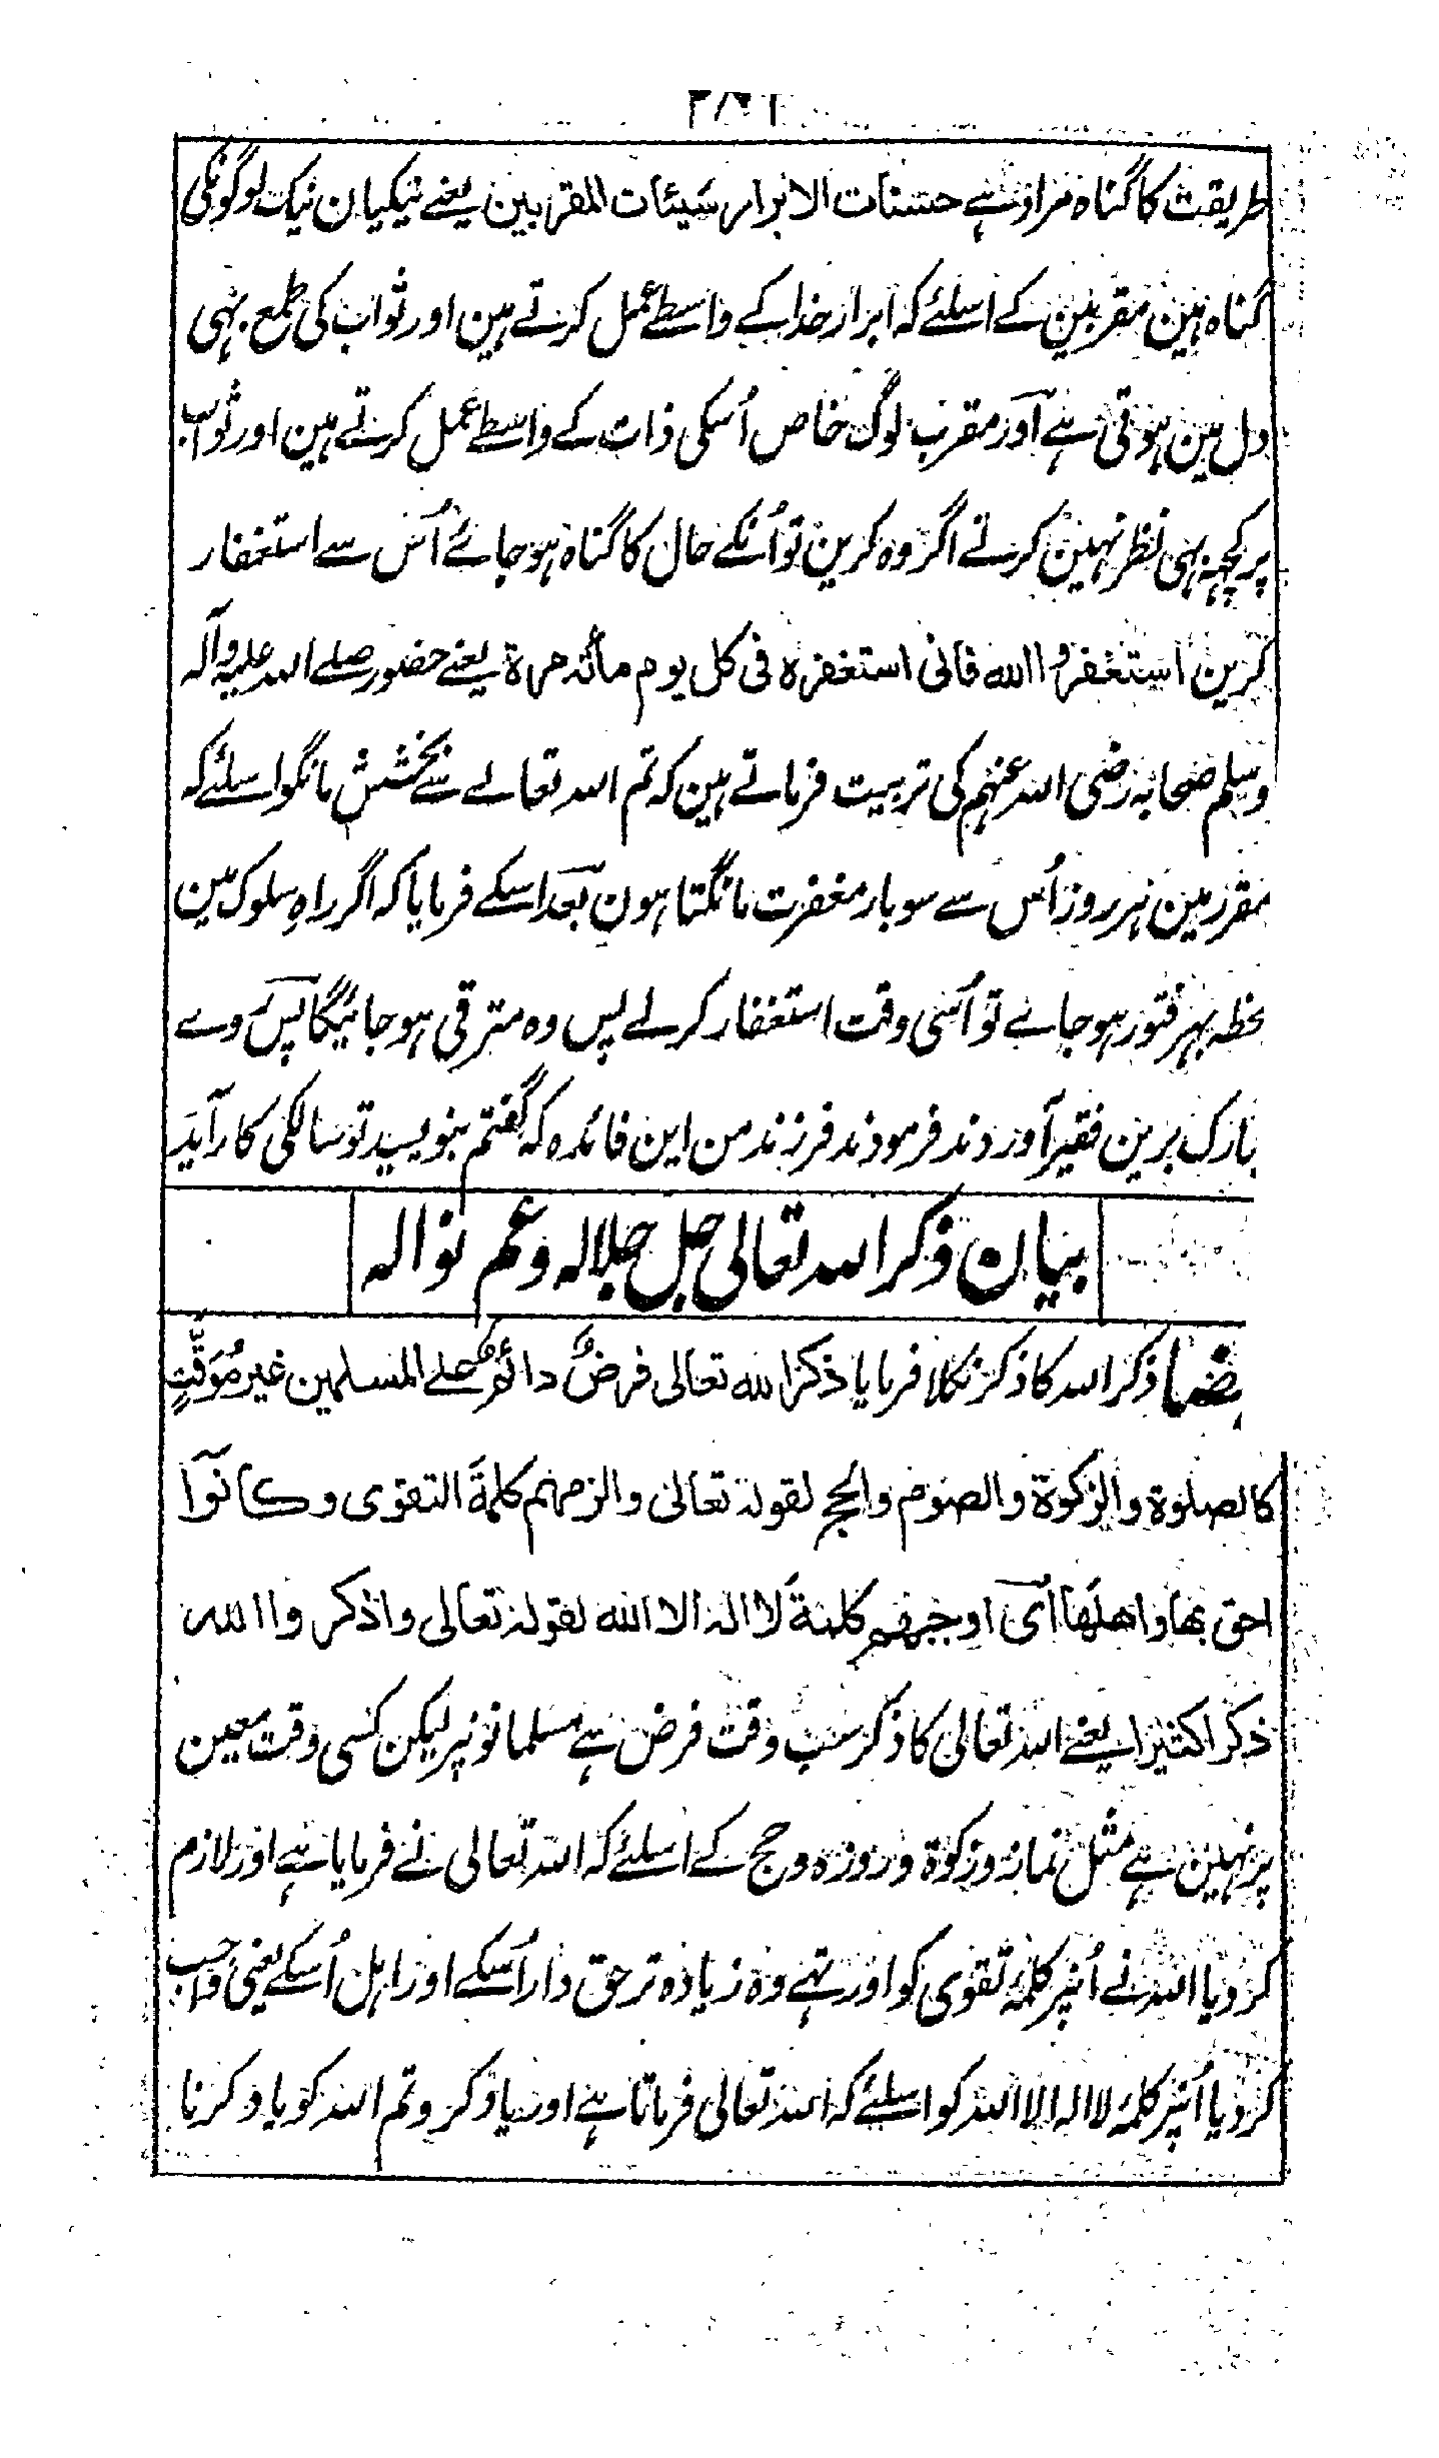 طریقت کا گناہ مراد ہے حسنات الابرار سیئات المقربین یعنے نیکیان نیک لوگونکی
گناہ ہین مقربین کے اسلئے کہ ابرار خدا کے واسطے عمل کرتے ہین اور ثواب کی طمع بہی
دل مین ہوتی ہے اور مقرب لوگ خاص اُسکی ذات کے واسطے عمل کرتے ہین اور ثواب
پر کچہہ بہی نظر نہین کرتے اگر وہ کرین تو اُنکے حال کا گناہ ہو جائے اُس سے استغفار
کرین استغفروا الله فانی استغفره فی کل یوم مائة مرة یعنے حضور صلے اللہ علیہ وآلہ
وسلم صحابہ رضی اللہ عنہم کی تربیت فرماتے ہین کہ تم اللہ تعالے سے بخشش مانگو اسلئے کہ
مقرر مین ہر روز اُس سے سو بار مغفرت مانگتا ہون بعد اسکے فرمایا کہ اگر راہِ سلوک مین
لحظہ بہر فتور ہو جائے تو اُسی وقت استغفار کرلے پس وہ مترقی ہو جائیگا پس روے
بارک برین فقیر آوردند فرمودند فرزند من این فائدہ کہ گفتم بنویسید تو سالکی کار آید
بیان ذکر اللہ تعالی جل جلالہ وعم نوالہ
یضا ذکر اللہ کا ذکر نکلا فرمایا ذکر الله تعالی فرضٌ دائمٌ علے المسلمین غیر مُوَقَّتٍ
کالصلوة والزکوة والصوم والحج لقوله تعالی والزمهم کلمةَ التقوی وکانوآ
احق بها واهلها ای اوجبهم کلمةَ لا اله الا الله لقوله تعالی واذکروا الله
ذکرا کثیرا یعنے اللہ تعالی کا ذکر سب وقت فرض ہے مسلمانونپر لیکن کسی وقت معین
پر نہین ہے مثل نماز وزکوة وروزہ وحج کے اسلئے کہ اللہ تعالی نے فرمایا ہے اور لازم
کر دیا اللہ نے اُنپر کلمۂ تقوی کو اور تہے وہ زیادہ تر حق دار اُسکے اور اہل اُسکے یعنی واجب
کر دیا اُنپر کلمۂ لا الہ الا اللہ کو اسلئے کہ اللہ تعالی فرماتا ہے اور یاد کرو تم اللہ کو یاد کرنا